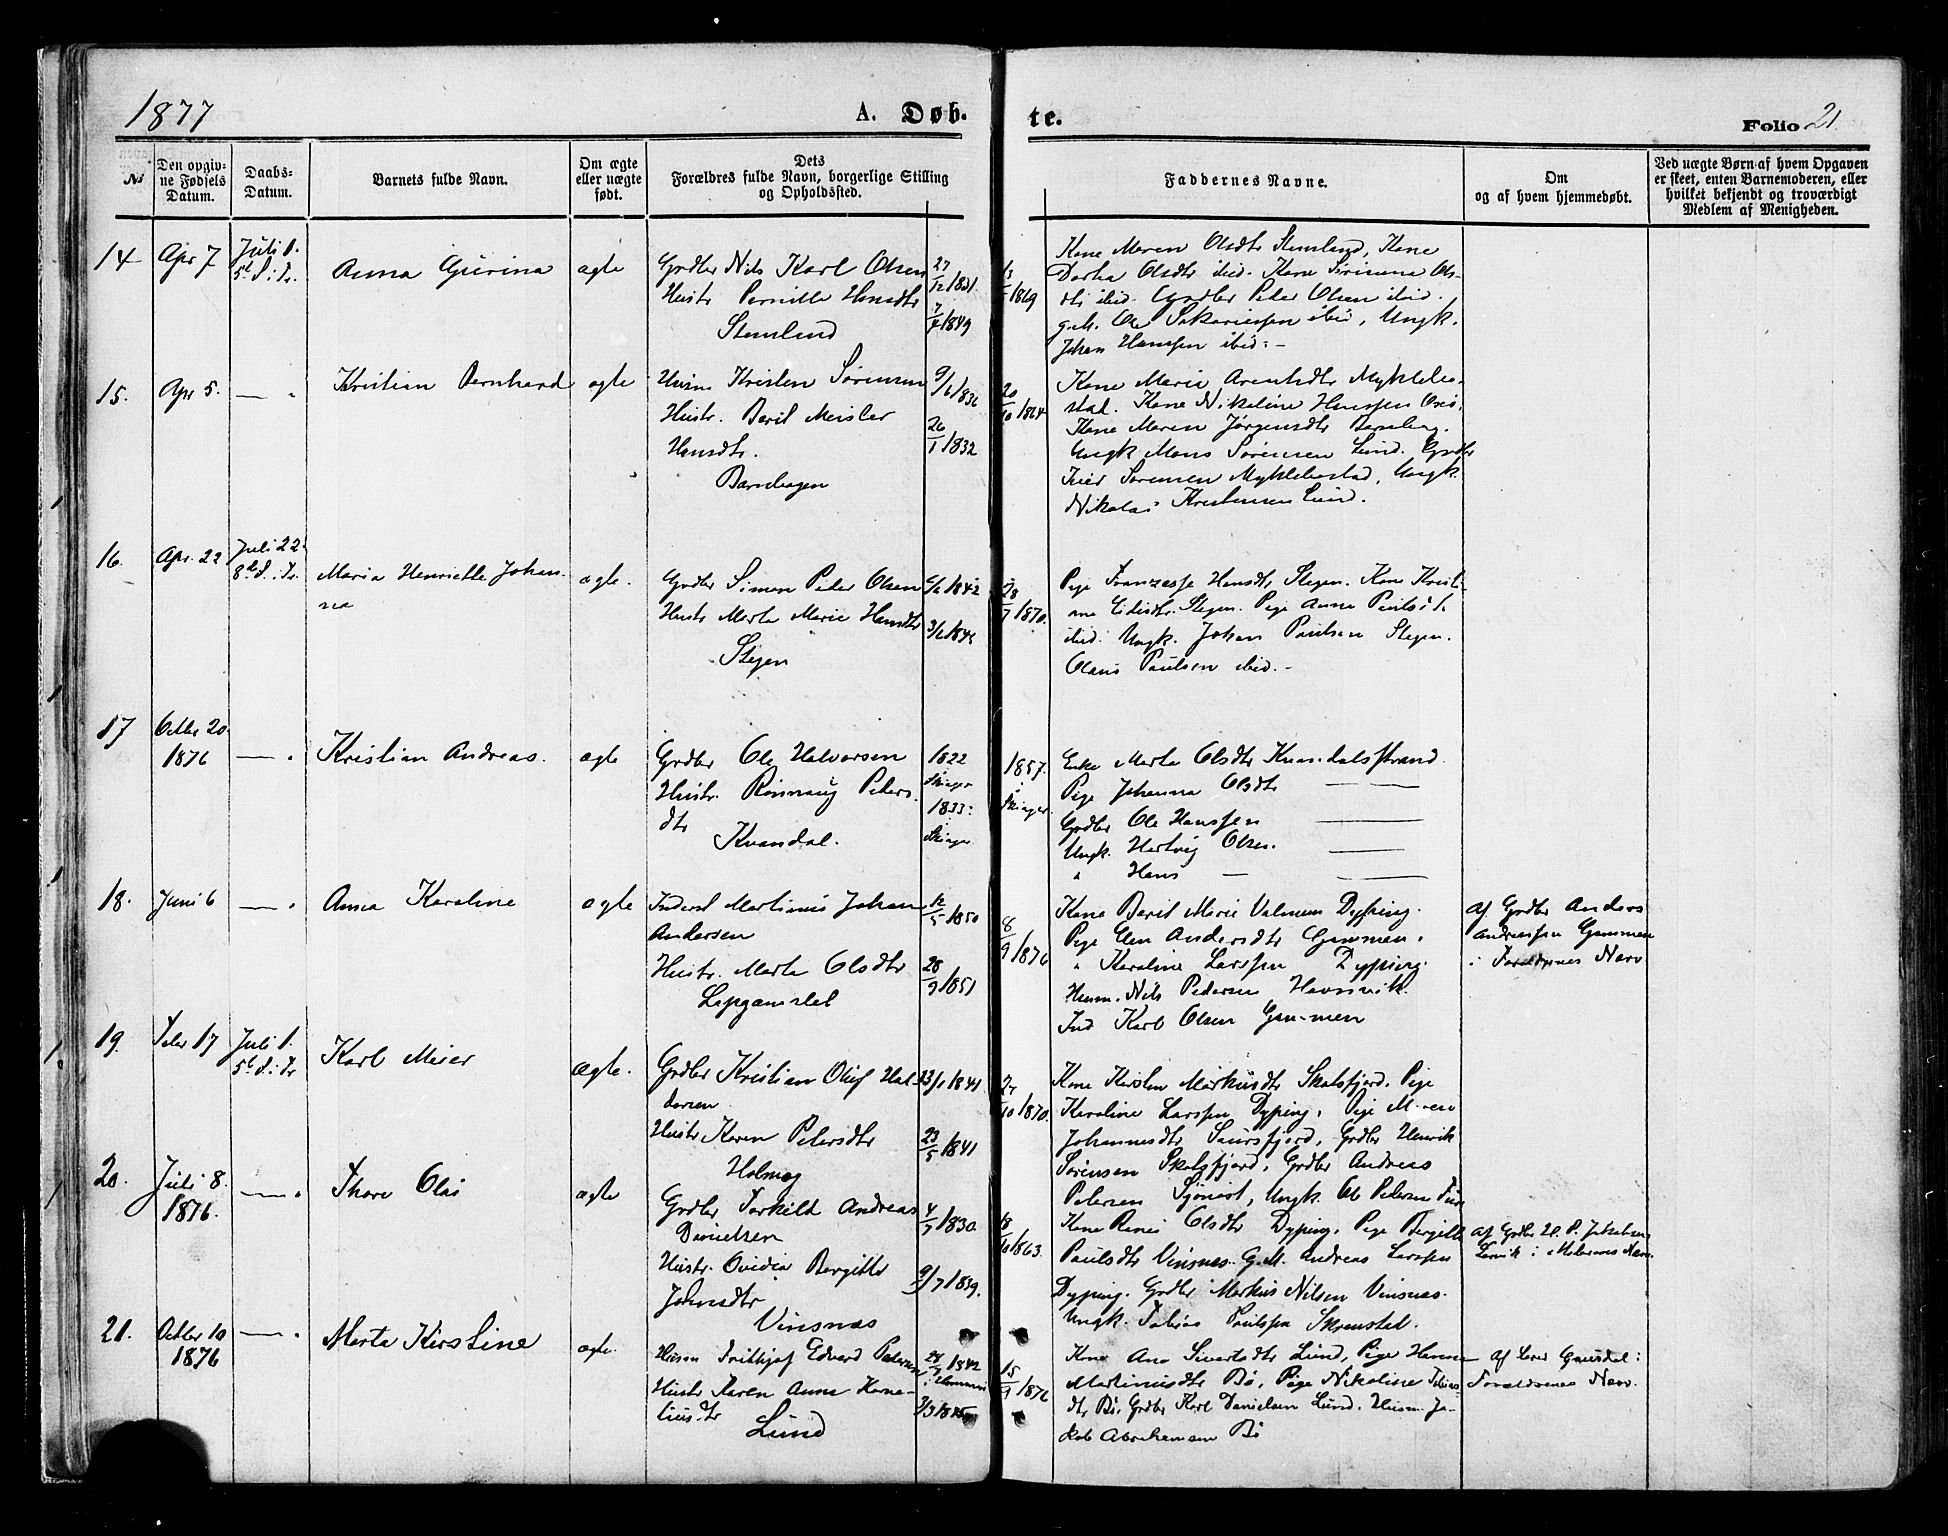 1877
A. Døb-
te.
Folio 21.
№
Den opgiv-
ne Fødsels
Datum.
Daabs-
Datum.
Barnets fulde Navn.
Om ægte
eller uægte
født.
Dets
Forældres fulde Navn, borgerlige Stilling
og Opholdssted.
Faddernes Navne.
Om
og af hvem hjemmedøbt.
Ved uægte Børn af hvem Opgaven
er skeet, enten Barnemoderen, eller
hvilket bekjendt og troværdigt
Medlem af Menigheden.
14
Apr 7
Juli 1.
5te S. i. Tr.
Anna Gurina
ægte
Grdbr Nils Karl Olsen
27/12 1821.
Hustr Pernille Hansdtr
7/7 1849
Stemland
1869
Kone Maren Olsdtr Stemland, Kone
Dorha Olsdtr ibid. Kone Sirianna Ols-
dtr ibid. Grdbr Peder Olsen ibid.
g.M. Ole Sakariassen ibid, Ungk.
Johan Hanssen ibid.-
15.
Apr 5.
— "
Kristian Bernhard
ægte
Husm Kristen Sørensen
9/6 1836
Hustr. Berit Meisler
Hansdtr.
26/1 1832
Barnhaugen
20/10 1864
Kone Marie Arentsdtr Myklebo-
stad. Kone Nikoline Hanssen
Kone Maren Jørgensdtr
Ungk Mons Sørensen Lund. Grdbr
Iver Sørensen Myklebostad, Ungk.
Nikolai Kristensen Lund.
16.
Apr. 22
Juli 22.
8de S. i. Tr.
Maria Henriette Johan-
na
ægte.
Grdbr Simon Peder Olsen
6/6 1842
Hustr Marta Marie Hansdtr
3/6 1842
Stegen
28/7 1870.
Pige Franzesse Hansdtr Stegen. Kone Kristi-
ane Eidisdtr. Stegen. Pige Anne Paulsdtr
ibid. Ungk. Johan Paulsen Stegen.
Olaus Paulsen ibid.-
17
Octbr 20.
1876
— "
Kristian Andreas.
ægte
Grdbr Ole Halvorsen
1822
Skinger
Hustr. Rønnaug Peders-
dtr
1833.
Skinger
Kvandal.
1857.
Skinger.
Enke Marta Olsdtr Kvandalsstrand.
Pige Johanna Olsdtr —
Grdbr Ole Hanssen —
Ungk. Hartvig Olsen. —
" Hans — —
18.
Juni 6
— "
Anna Karoline
ægte
Inderst Martinus Johan
Andersen
12/5 1850
Hustr. Marta Olsdtr
28/9 1851
Lapgamslet
8/9 1876
Kone Berit Marie Valmum Dypping.
Pige Elen Andersdtr Gammen.
" Karoline Larssen Dypping.
Husm. Nils Pedersen Havnvik.
Ind Karl Olsen Gammen
Af Grdbr Anders
Andreassen Gammen
i Forældrenes Navn
19.
Febr 17
Juli 1.
5te S. i. Tr
Karl Meier
ægte.
Grdbr Kristian Oluf Hal-
dorsen
23/1 1841.
Hustr Karen Pedersdtr
23/5 1841
Holmeg
27/10 1870.
Kone Kirsten Markusdtr Skotsfjord. Pige
Karoline Larssen Dyping. Pige Maren
Johannesdtr Saursfjord, Grdbr Henrik
Sørensen Skotsfjord, Grdbr Andreas
Pedersen Sjonist, Ungk. Ole Pedersen
20.
Juli 8.
1876.
— "
Thore Olai
ægte
Grdbr Torkild Andreas
Danielsen
4/5 1830
Hustr. Ovidia Bergitte
Johnsdtr
9/7 1839.
Vinsnæs
18/10 1863.
Kone Rensi Olsdtr Dyping, Pige Bergitte
Paulsdtr Vinsnes. G.M. Andreas Larssen
Dyping. Grdbr Markus Nilsen Vinsnæs.
Ungk. Tobias Paulsen Skrenstad.
af Grdbr Ol. P. Jakobsen
Lervik i Moderens Navn
21.
Octbr 10
1876
— "
Marta Kirstine
ægte.
Husm Frithjof Edvard Pedersen
24/9 1842
i Hammerø
Hustr Karen Anna Korne-
liusdtr
Lund
15/9 1876
Kone Ane Sivertsdtr Lund, Pige Hanna
Martinusdtr Bø, Pige Nikoline Tobias-
dtr Bø, Grdbr Karl Danielsen Lund. Husm. Ja-
kob Abrahamsen Bø
af Lærer Gausdal i
Forældrenes Navn.